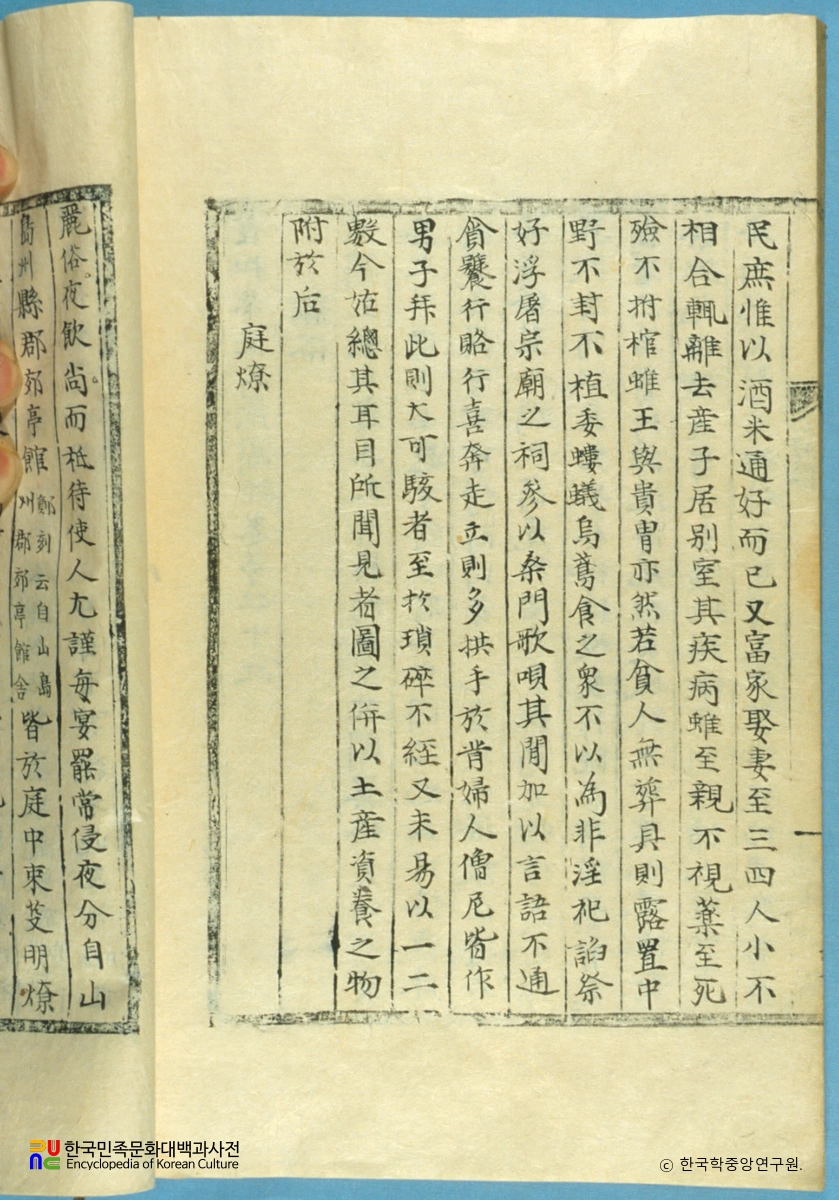 民庶惟以酒米通好而已又富家娶妻至三四人小不
相合輒離去産子居别室其疾病雖至親不視藥至死
殮不拊棺雖王與貴胄亦然若貧人無葬具則露置中
野不封不植委螻蟻烏鳶食之衆不以為非淫祀諂祭
好浮屠宗廟之祠參以桑門歌唄其間加以言語不通
貪饕行賂行喜奔走立則多拱手於背婦人僧尼皆作
男子拜此則大可駭者至於瑣碎不經又未易以一二
數今姑總其耳目所聞見者圖之併以土産資養之物
附於后
庭燎
麗俗夜飲尚而祗待使人尤謹每宴罷常侵夜分自山
島州縣郡郊亭館鄭刻云自山島州郡郊亭館舍皆於庭中束芟明燎
한국민족문화대백과사전
Encyclopedia of Korean Culture
ⓒ 한국학중앙연구원.